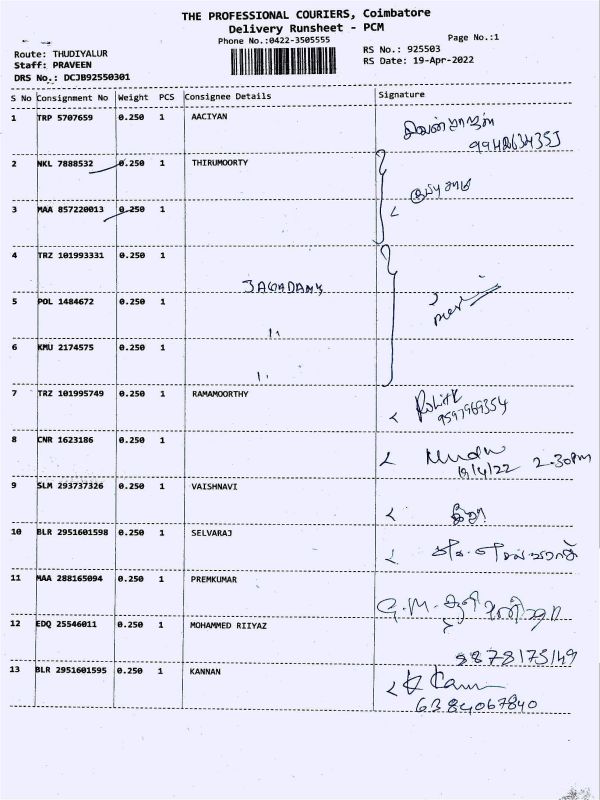 THE PROFESSIONAL COURIERS, Coimbatore
Delivery Runsheet - PCM
Phone No.:0422-3505555
Page No.:1
Route: THUDIYALUR
Staff: PRAVEEN
DRS No.: DCJB92550301
RS No.: 925503
RS Date: 19-Apr-2022
S No Consignment No Weight PCS Consignee Details Signature
1 TRP 5707659 0.250 1 AACIYAN
2 NKL 7888532 0.250 1 THIRUMOORTY
3 MAA 857220013 0.250 1
4 TRZ 101993331 0.250 1 JAGADAMY
5 POL 1484672 0.250 1 11
6 KMU 2174575 0.250 1 11
7 TRZ 101995749 0.250 1 RAMAMOORTHY Rohith
9597969354
8 CNR 1623186 0.250 1
19/4/22 2.30pm
9 SLM 293737326 0.250 1 VAISHNAVI
10 BLR 2951601598 0.250 1 SELVARAJ
11 MAA 288165094 0.250 1 PREMKUMAR
12 EDQ 25546011 0.250 1 MOHAMMED RIIYAZ
8878175149
13 BLR 2951601595 0.250 1 KANNAN
6384067840